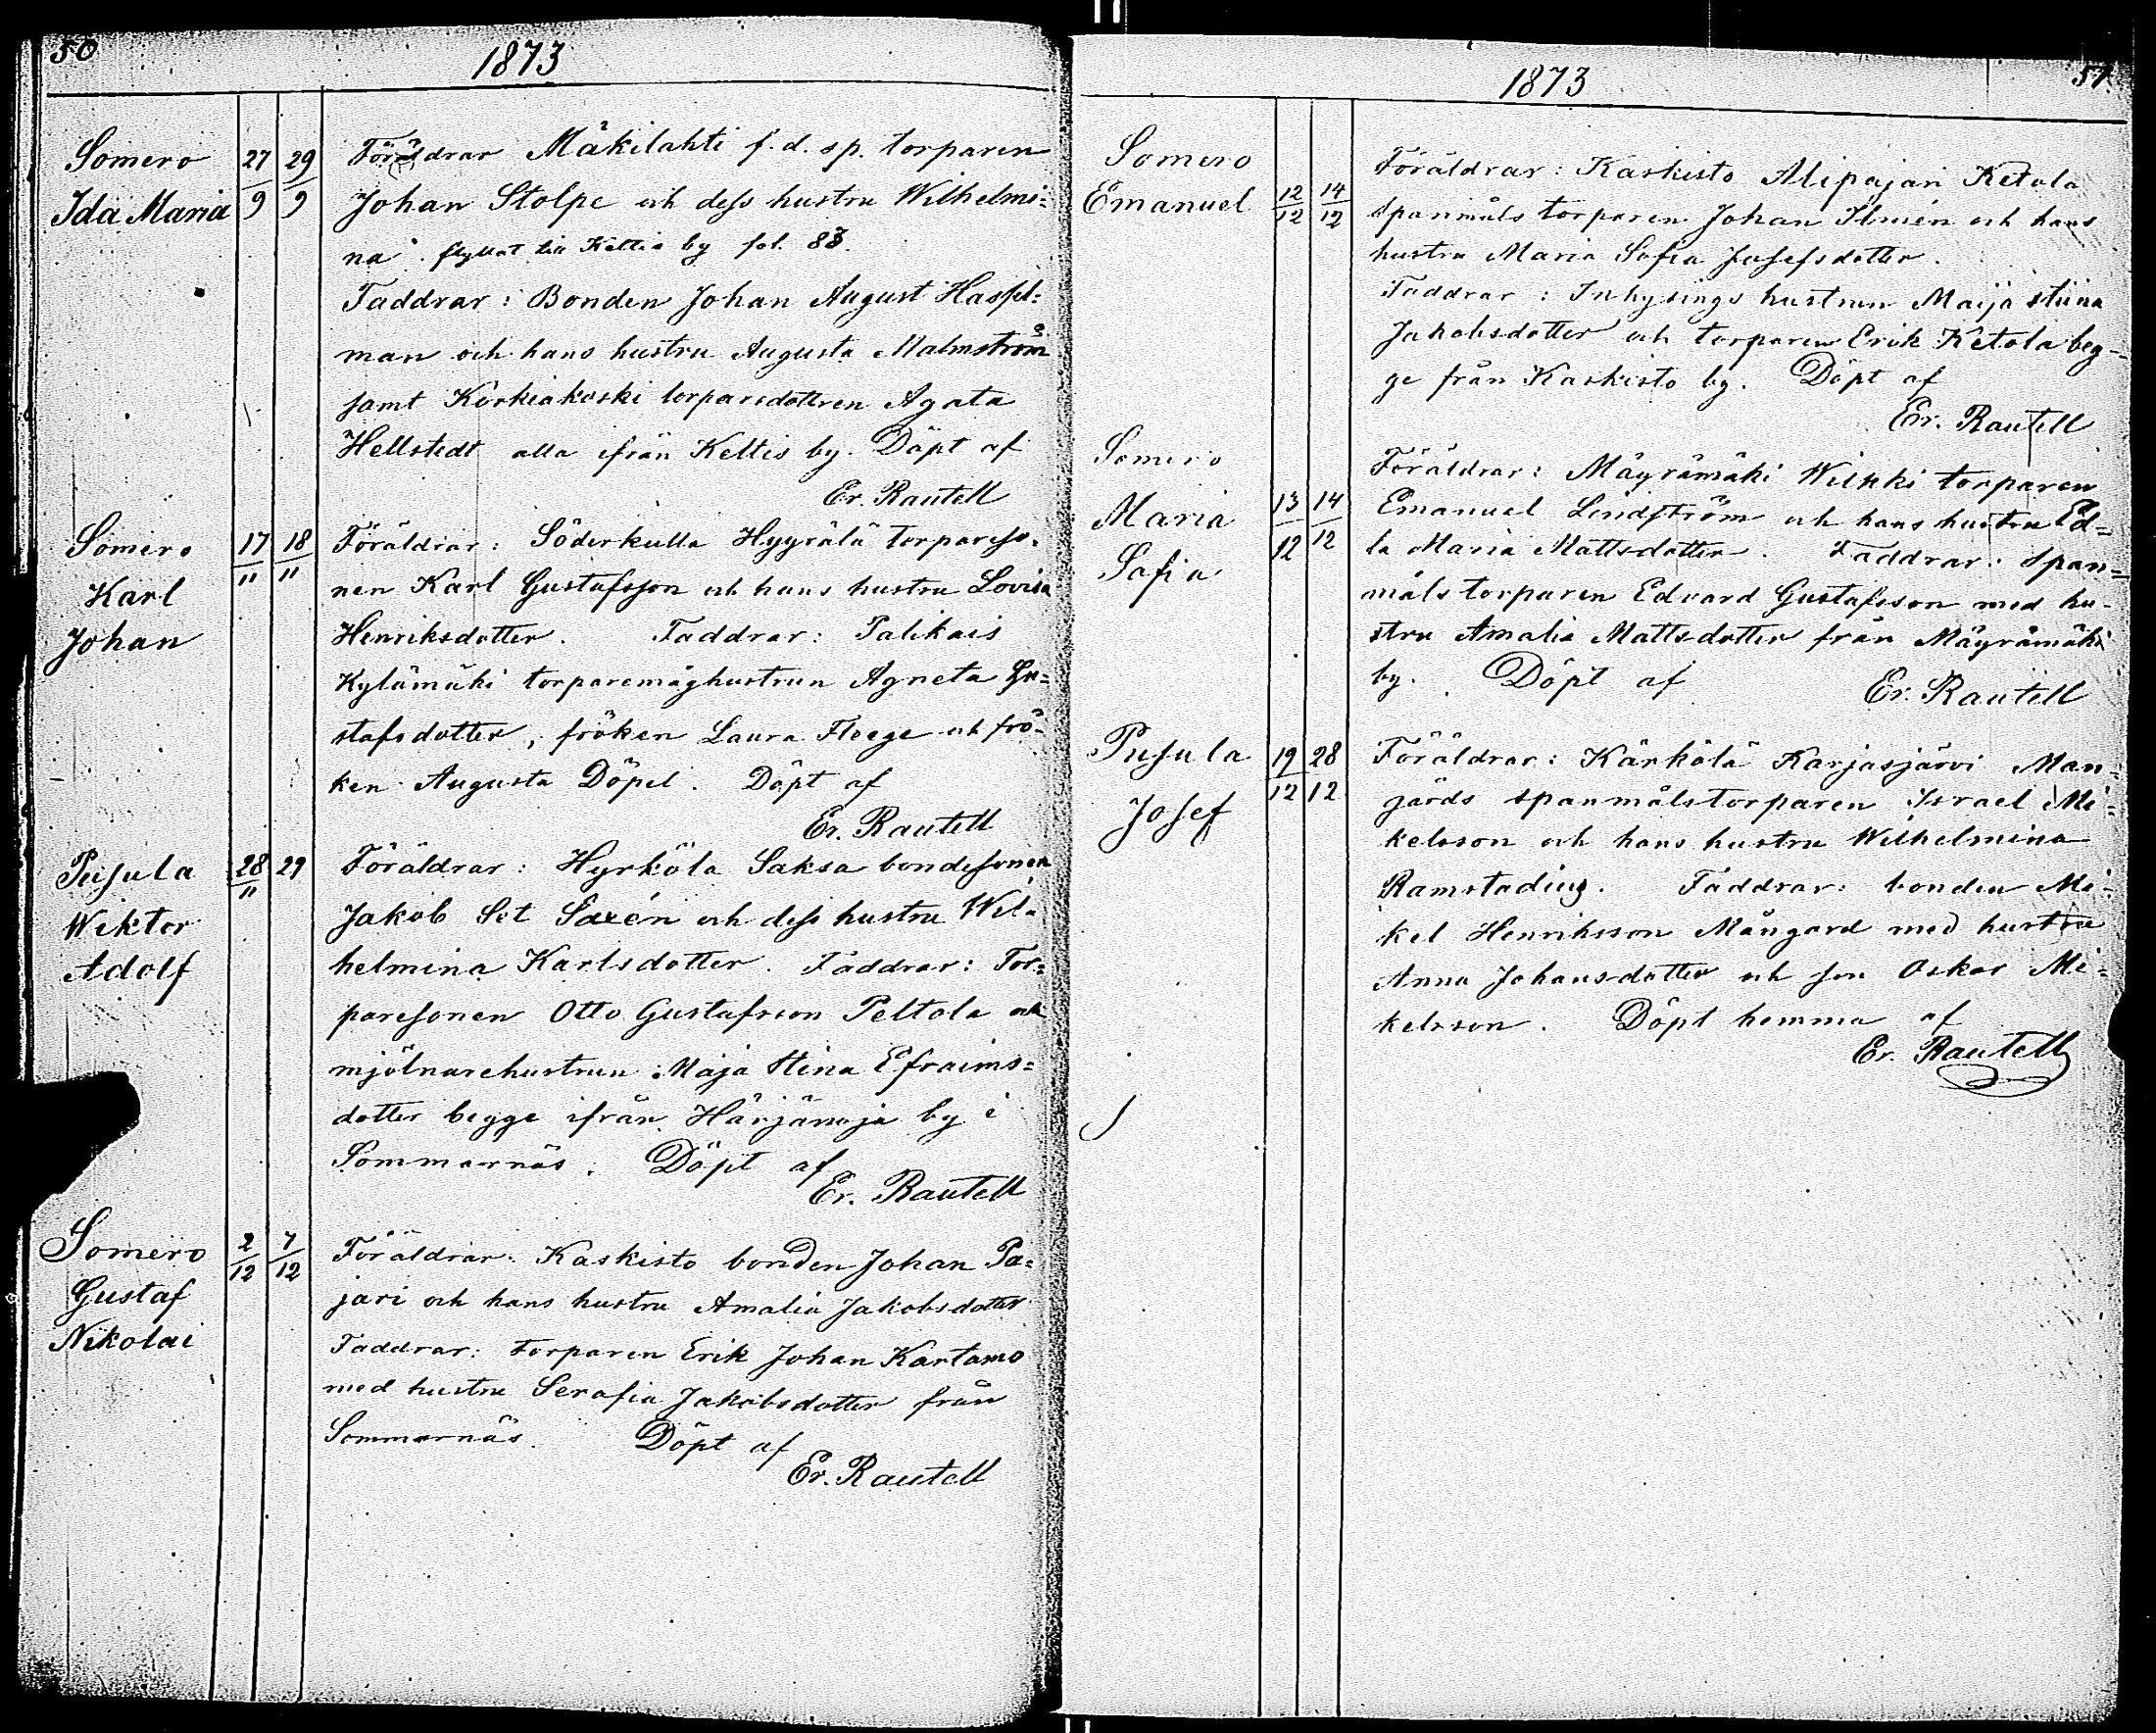 50
1873
Somero 27 29 Föräldrar Mäkilahti f. d. sp. torparen
Ida Maria 9 9 Johan Stolpe och dess hustru Wilhelmi=
na. flyttat till Keltis by fol. 83.
Faddrar: Bonden Johan August Haspel=
man och hans hustru Augusta Malmström
samt Korkiakoski torparedottren Agata
Hellstedt alla ifrån Keltis by. Döpt af
Er. Rautell
Somero 17 18 Föräldrar: Söderkulla Hyyrälä torpareso=
Karl 11 11 nen Karl Gustafsson och hans hustru Lovisa
Johan Henriksdotter. Faddrar: Palikais
Kylämäki torparemåghustrun Agneta Gu=
stafsdotter, fröken Laura Fleege och frö=
ken Augusta Döpel. Döpt af
Er. Rautell
Pusula 28 29 Föräldrar: Hyrköla Saksa bondesonen
Wiktor 11 Jakob Set Saxén och dess hustru Wil=
Adolf helmina Karlsdotter. Faddrar: Tor=
paresonen Otto Gustafsson Peltola och
mjölnarehustrun Maja Stina Efraims=
dotter begge ifrån Härjänoja by i
Sommarnäs. Döpt af
Er. Rautell
Somero 2 7 Föräldrar: Kaskisto bonden Johan Pa=
Gustaf 12 12 jari och hans hustru Amalia Jakobsdotter
Nikolai Faddrar: Torparen Erik Johan Kartamo
med hustru Serafia Jakobsdotter från
Sommarnäs. Döpt af
Er. Rautell
1873
51.
Somero Föräldrar: Kaskisto Alipajari Ketola
Emanuel 12 14 spanmåls torparen Johan Ilmén och hans
12 12 hustru Maria Sofia Josefsdotter.
Faddrar: Inhysings hustrun Maija Stiina
Jakobsdotter och torparen Erik Ketola beg-
ge från Kaskisto by. Döpt af
Er. Rautell
Somero Föräldrar: Mäyrämäki Wilkki torparen
Maria 13 14 Emanuel Lindström och hans hustru Ed=
Sofia 12 12 la Maria Mattsdotter. Faddrar: span=
måls torparen Edvard Gustafsson med hu-
stru Amalia Mattsdotter från Mäyrämäki
by. Döpt af
Er. Rautell
Pusula 19 28 Föräldrar: Kärkölä Karjasjärvi Man=
Josef 12 12 gårds spanmålstorparen Israel Mi=
kelsson och hans hustru Wilhelmina
Ramstadius. Faddrar: bonden Mi=
kel Henriksson Mångard med hustru
Anna Johansdotter och son Oskar Mi=
kelsson. Döpt hemma af
Er. Rautell